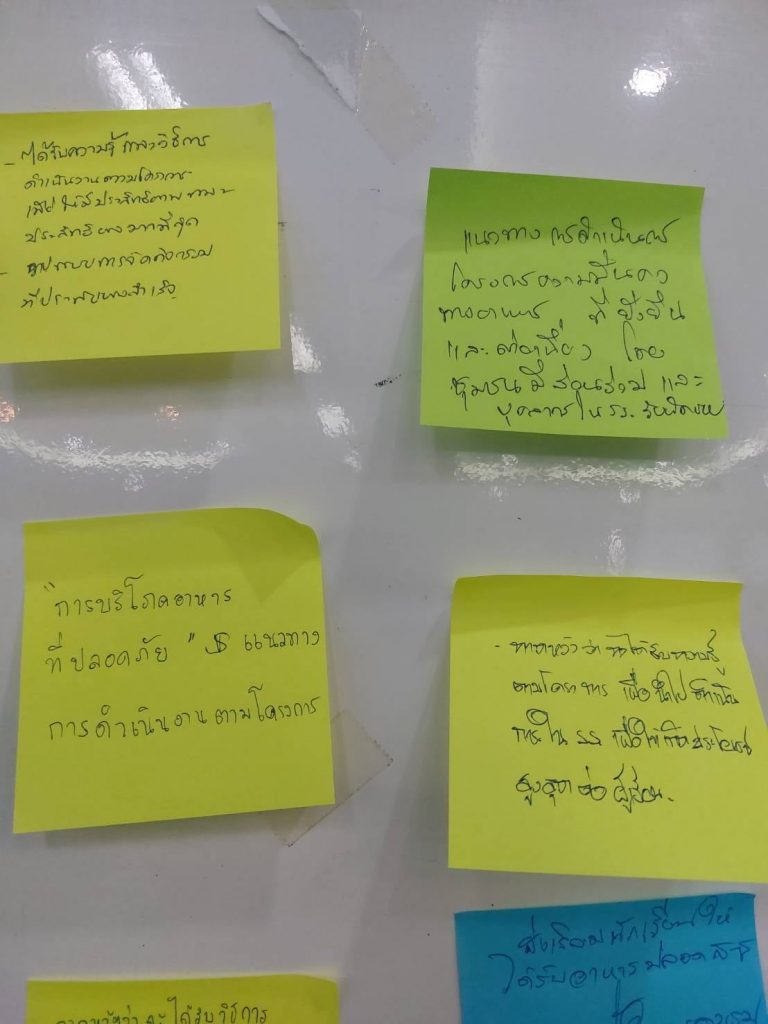 - ได้รับความรู้ และวิธีการ
ดำเนินงานตามโครงการ
เพื่อให้มีประสิทธิภาพ และ
ประสิทธิผลมากที่สุด
- รูปแบบการจัดกิจกรรม
ที่ประสบผลสำเร็จ
แนวทางการดำเนินการ
โครงการความมั่นคง
ทางอาหาร ที่ยั่งยืน
และต่อเนื่อง โดย
ชุมชนมีส่วนร่วม และ
บุคลากรใน รร.
"การบริโภคอาหาร
ที่ปลอดภัย" & แนวทาง
การดำเนินงานตามโครงการ
- คาดหวังว่า จะได้รับความรู้
ตามโครงการ เพื่อนำไปดำเนิน
การใน รร เพื่อให้เกิดประโยชน์
สูงสุดต่อผู้เรียน.
ส่งเสริมนักเรียนให้
ได้รับอาหารปลอดสาร
คาดหวังว่าจะได้รับวิธีการ